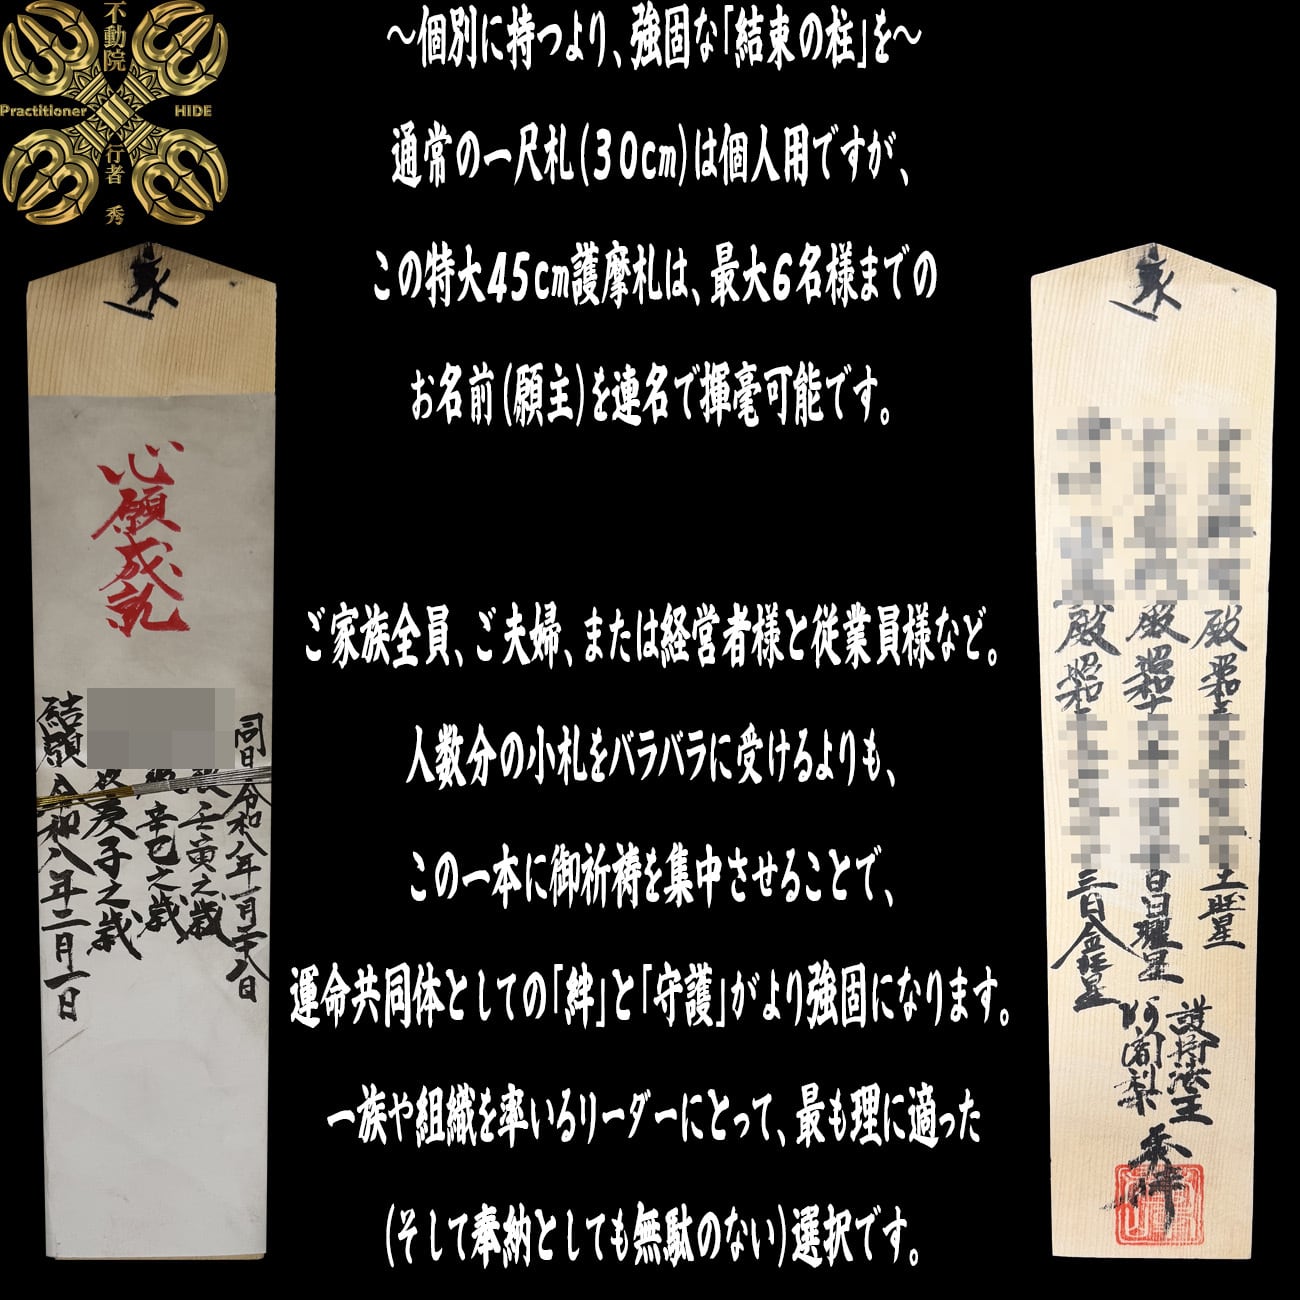 不動院
Practitioner
HIDE
行者 秀
～個別に持つより、強固な「結束の柱」を～
通常の一尺札(30cm)は個人用ですが、
この特大45cm護摩札は、最大6名様までの
お名前(願主)を連名で揮毫可能です。
ご家族全員、ご夫婦、または経営者様と従業員様など。
人数分の小札をバラバラに受けるよりも、
この一本に御祈祷を集中させることで、
運命共同体としての「絆」と「守護」がより強固になります。
一族や組織を率いるリーダーにとって、最も理に適った
(そして奉納としても無駄のない)選択です。
心願成就
同日 令和八年一月二十八日
壬寅之歳
辛巳之歳
庚子之歳
結願 令和八年二月一日
殿 昭和
土曜星
殿 昭和
日曜星
殿 昭和
三日 金曜星
護持法王
阿闍梨